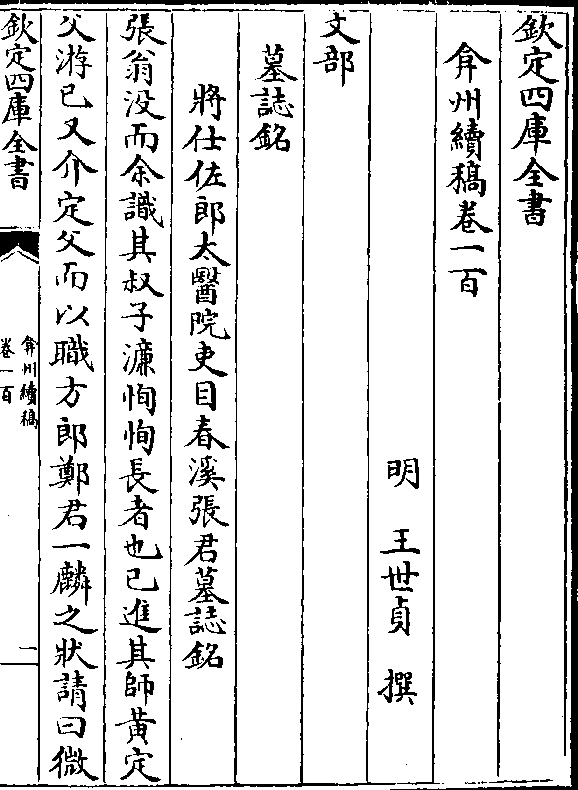 欽定四庫全書
弇州續稿卷一百
明 王世貞 撰
文部
墓誌銘
將仕佐郎太醫院吏目春溪張君墓誌銘
張翁没而余識其叔子濂恂恂長者也已進其師黄定
父游已又介定父而以職方郎鄭君一麟之狀請曰微
欽定四庫全書
弇州續稿
卷一百
一